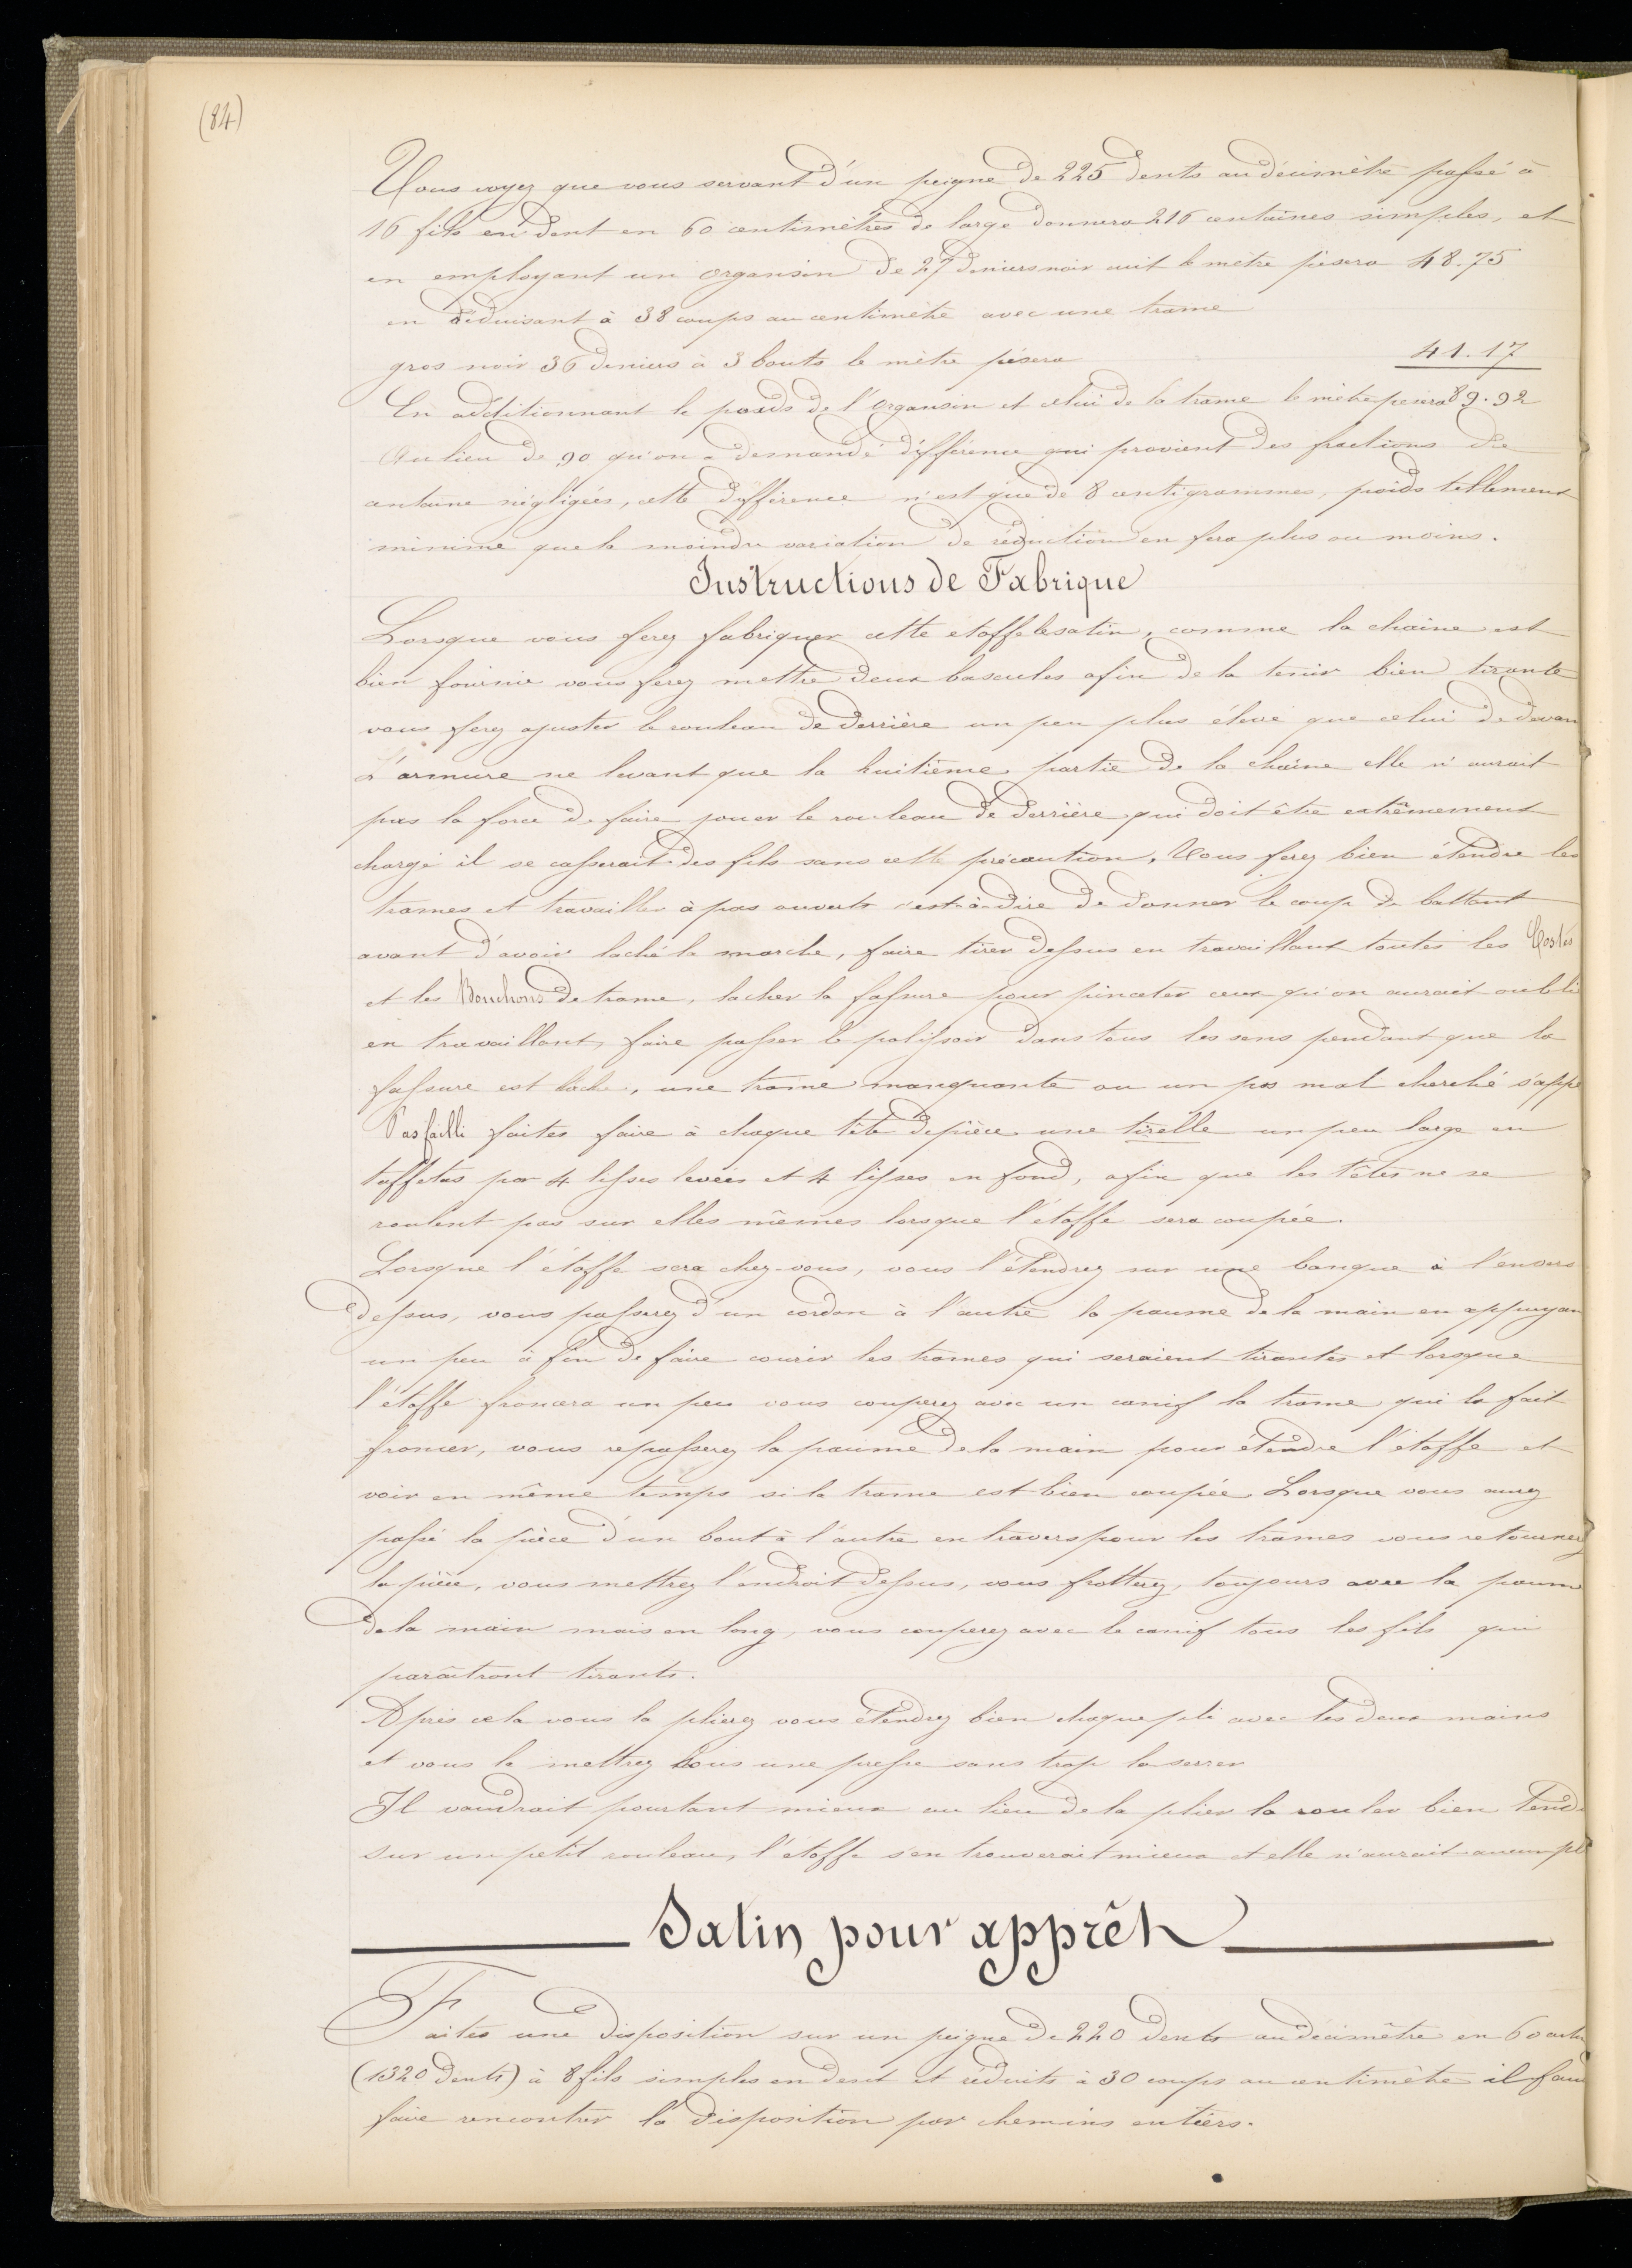 (84)
Vous voyez que vous servant d'un peigne de 225 dents au décimètre passé à
16 fils en dent en 60 centimètres de large donnera 216 centaines simples, et
en employant un organsin de 27 deniers noir cuit le mètre pèsera 48.75
en réduisant à 38 coups au centimètre avec une trame
gros noir 36 deniers à 3 bouts le mètre pèsera 41.17
En additionnant le poids de l'organsin et celui de la trame le mètre pesera 89.92
Au lieu de 90 qu'on a demandé différence qui provient des fractions de
centaine négligées, cette différence n'est que de 8 centigrammes, poids tellement
minime que la moindre variation de réduction en fera plus ou moins.
Instructions de Fabrique
Lorsque vous ferez fabriquer cette etoffe le satin, comme la chaine est
bien fournie vous ferez mettre deux bascules afin de la tenir bien tirante
vous ferez ajuster le rouleau de derrière un peu plus éleve que celui de devan
L'armure ne levant que la huitième partie de la chaine elle n'aurait
pas la force de faire jouer le rouleau de derrière qui doit être extrêmement
chargé il se casserait des fils sans cette précaution. Vous ferez bien étendre les
trames et travailler à pas ouverts c'est-à-dire de donner le coup de battant
avant d'avoir laché la marche, faire tirer dessus en travaillant toutes les Costes
et les Bouchons de trame, lacher la fassure pour pinceter ceux qu'on aurait oubli
en travaillant, faire passer le polissoir dans tous les sens pendant que la
fassure est lache, une trame manquante ou un pas mal cherché s'appe
Pas failli faites faire à chaque tête de pièce une tirelle un peu large en
taffetas par 4 lisses levées et 4 lisses en fond, afin que les têtes ne se
roulent pas sur elles mêmes lorsque l'étoffe sera coupée.
Lorsque l'étoffe sera chez-vous, vous l'étendrez sur une banque à l'envers
dessus, vous passerez d'un cordon à l'autre la paume de la main en appuyan
un peu à fin de faire courir les trames qui seraient tirantes et lorsque
l'étoffe froncera un peu vous couperez avec un canif la trame qui la fait
froncer, vous repasserez la paume de la main pour étendre l'étoffe et
voir en même temps si la trame est bien coupée. Lorsque vous aurez
passé la pièce d'un bout à l'autre en travers pour les trames vous retournez
la pièce, vous mettrez l'endroit dessus, vous frotterez, toujours avec la paume
de la main mais en long, vous couperez avec le canif tous les fils qui
paraîtront tirants.
Après cela vous la plierez vous étendrez bien chaque pli avec les deux mains
et vous la mettrez sous une presse sans trop la serrer
Il vaudrait pourtant mieux au lieu de la plier la rouler bien tend
sur un petit rouleau, l'étoffe s'en trouverait mieux et elle n'aurait aucun pli
Satin pour apprêt
Faites une disposition sur un peigne de 220 dents au décimètre en 60
(1320 dents) à 8 fils simples en dent et réduits à 30 coups au centimètre il fau
faire rencontrer la disposition par chemins entiers.